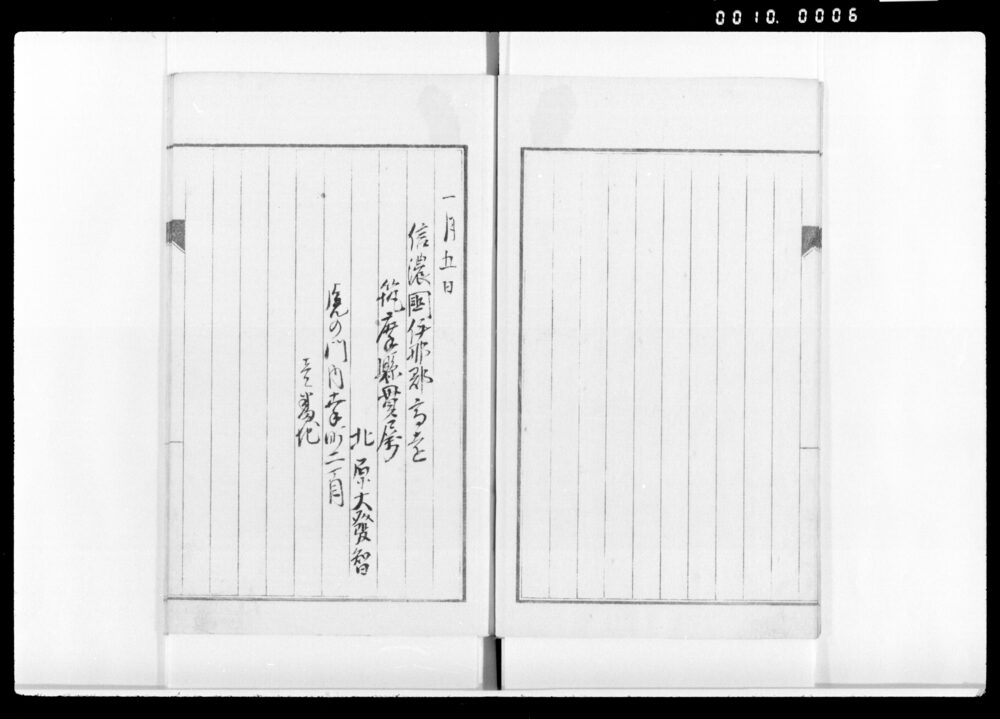 0010.0006
一月五日
信濃國伊那郡高遠
筑摩縣貫属
北原大發智
虎の門内幸町二丁目
壱番地